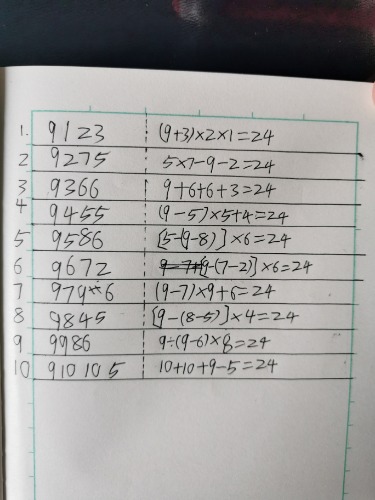 1. 9 1 2 3 (9+3)×2×1=24
2 9275 5×7-9-2=24
3 9366 9+6+6+3=24
4 9455 (9-5)×5+4=24
5 9586 [5-(9-8)]×6=24
6 9672 [9-(7-2)]×6=24
7 979 6 (9-7)×9+6=24
8 9845 [9-(8-5)]×4=24
9 9986 9÷(9-6)×8=24
10 910 10 5 10+10+9-5=24